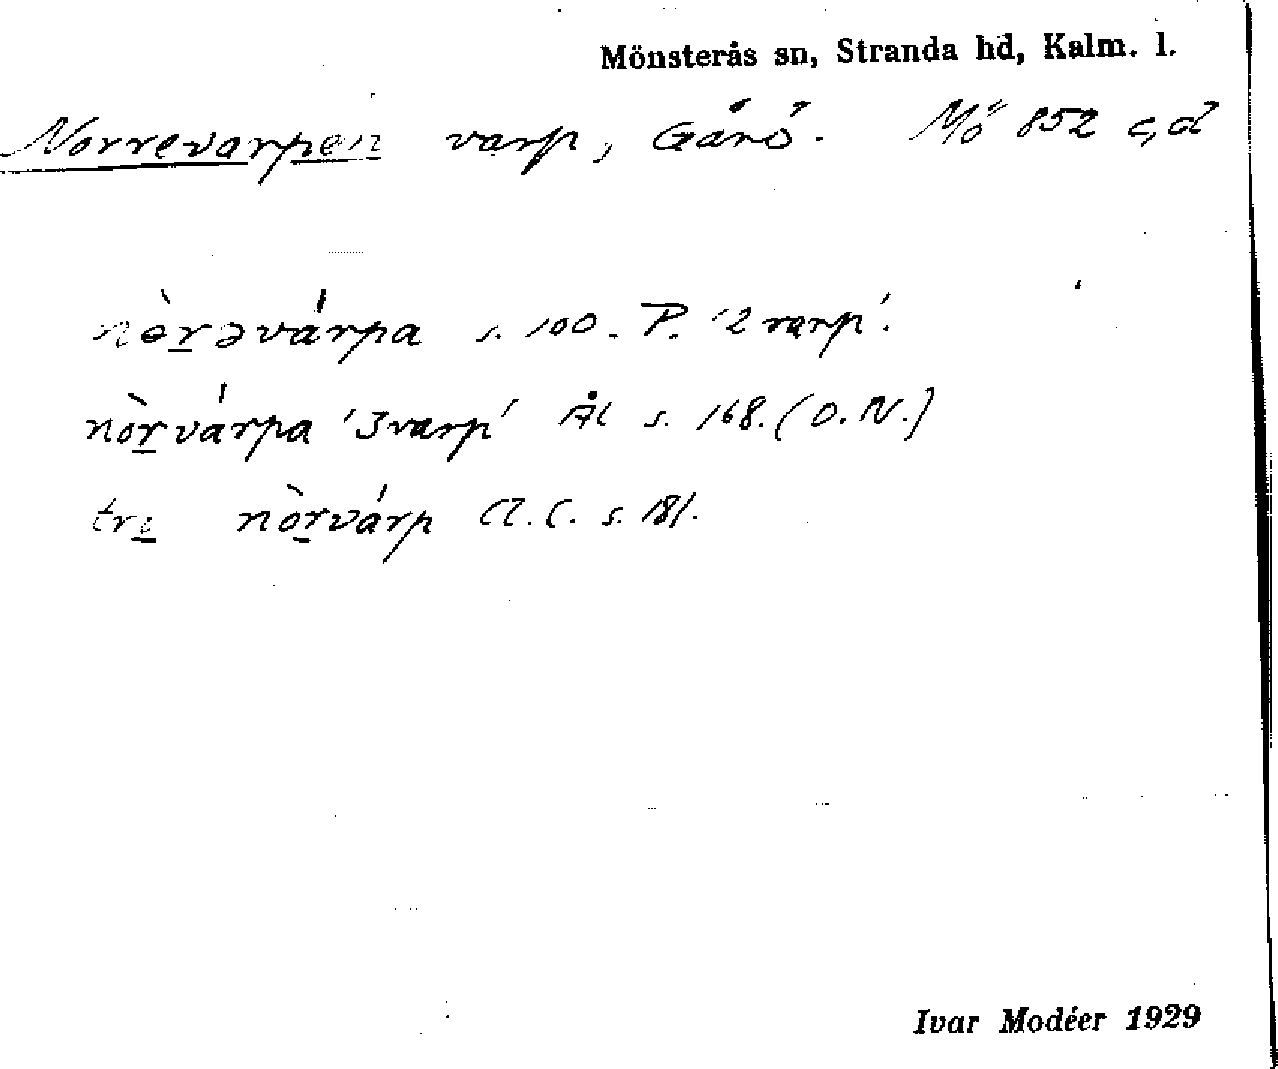 Mönsterås sn, Stranda hd, Kalm. l.
Norrevarpen varp, Gåsö. Mö 852 c,d
nòrəvárpa s. 100. P. '2 varp'.
nòrvárpa '3 varp' Ål s. 168. (O. N.)
tri nòrvárp A. C. s. 181.
Ivar Modéer 1929